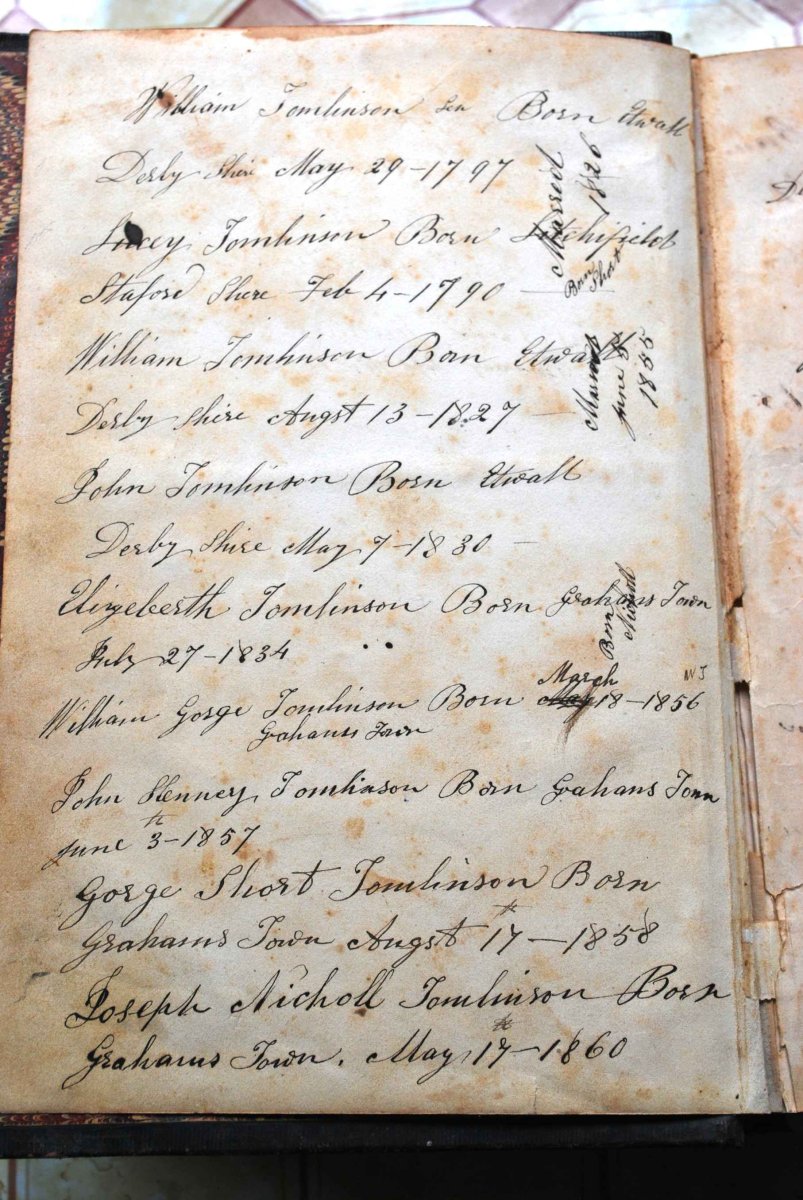 William Tomlinson Sen Born Etwall
Derby Shire May 29-1797
Lucey Tomlinson Born Litchifield
Staford Shere Feb 4-1790
Married
1826
Born
Short
William Tomlinson Born Etwall
Derby Shire Augst 13-1827
Married
June 5
1855
John Tomlinson Born Etwall
Derby Shire May 7-1830
Elizeberth Tomlinson Born Grahans Town
July 27-1834
Born
William Gorge Tomlinson Born May March 18-1856
Grahams Town
John Henney Tomlinson Born Grahans Town
June 3th-1857
Gorge Short Tomlinson Born
Grahams Town Augst 17th-1858
Joseph Nicholl Tomlinson Born
Grahams Town. May 17th-1860